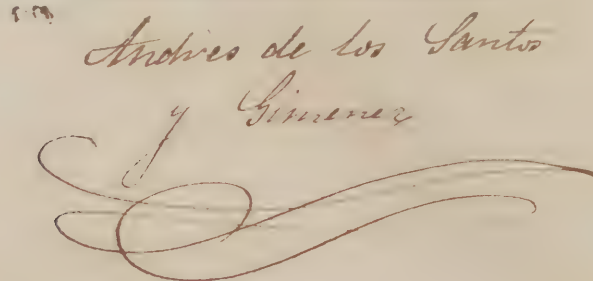 Andres de los Santos
y Gimenez